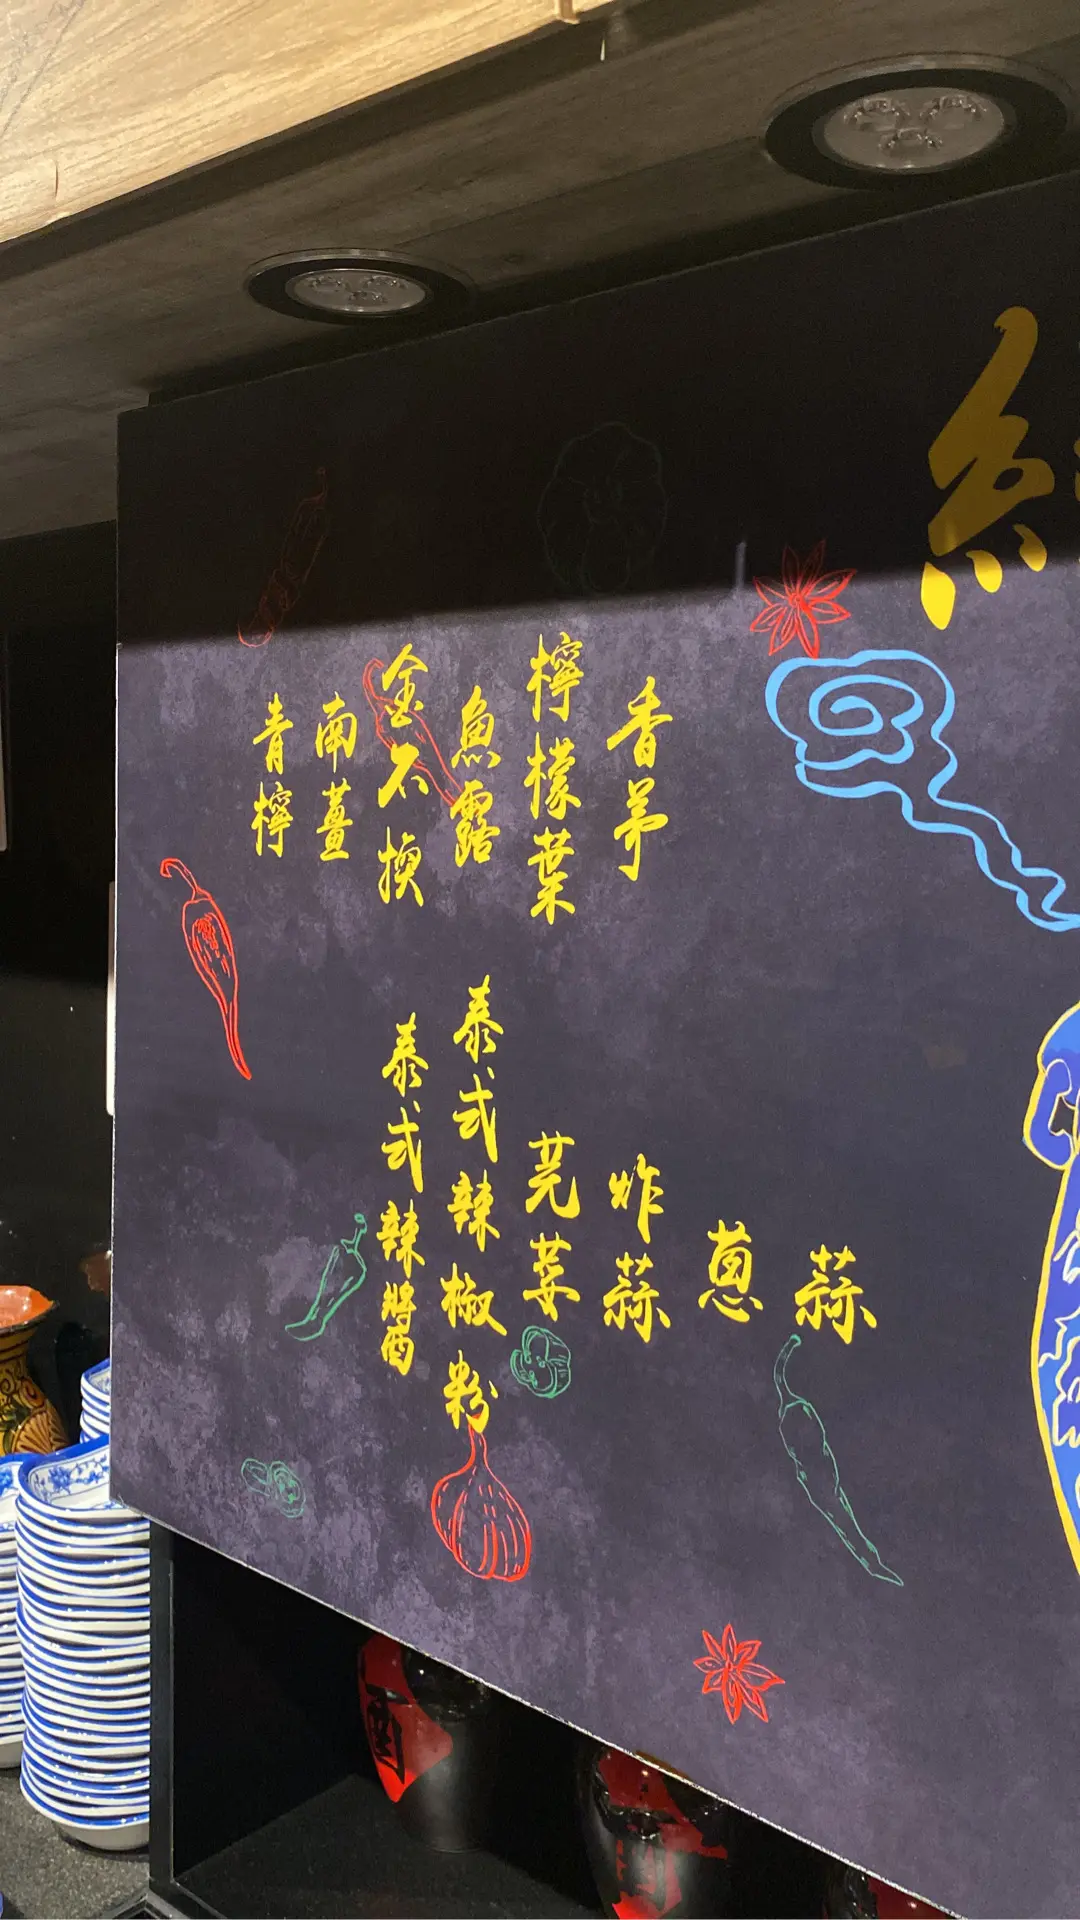 香茅
檸檬葉
魚露
金不換
南薑
青檸
蒜
蔥
炸蒜
芫荽
泰式辣椒粉
泰式辣醬
酒